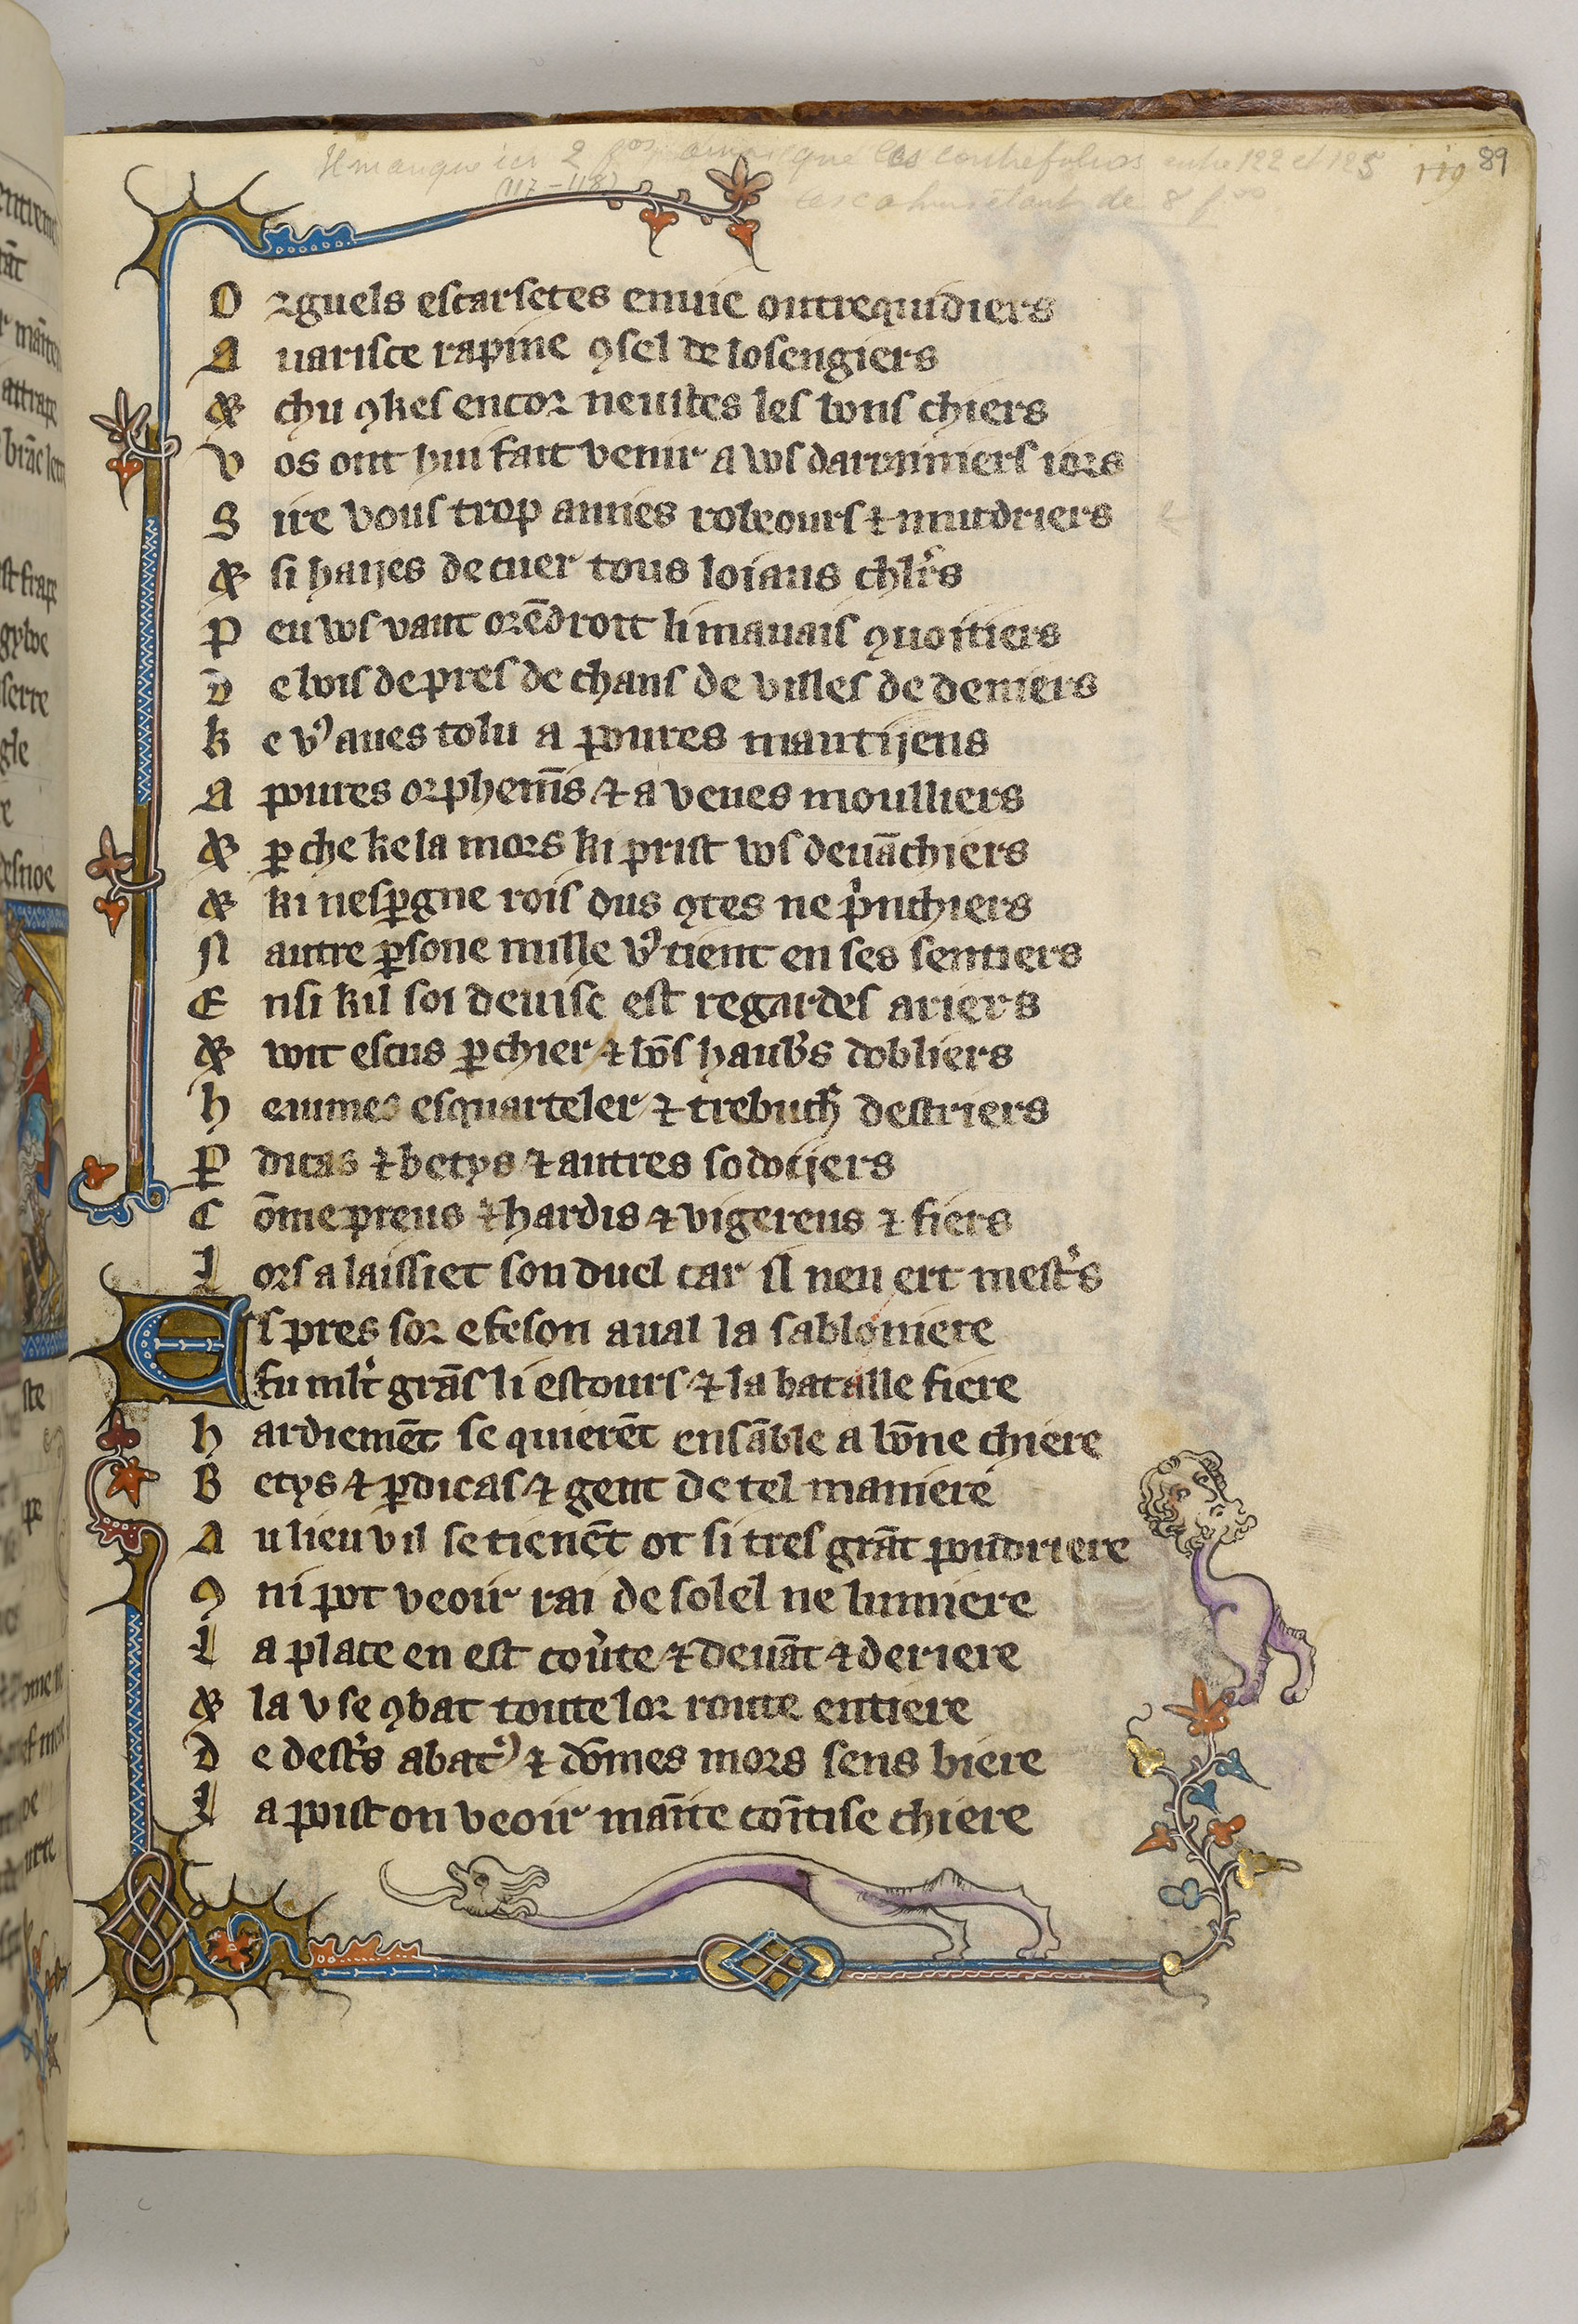 Il manque ici 2 fos ainsi que les contrefolios entre 122 et 125 119 89
(117-118) les cahiers étant de 8 fos
O rguels escarsetes enuie outrequidiers
A uarisce rapine ꝯsel de losengiers
& chu ꝯkes encor neuistes les bons chiers
V os ont hui fait venir a vos darrainiers iors
S ire vous trop amies robeours ⁊ murdriers
& si haijes de cuer tous loiaus chlr̄s
P eu vos vaut orēdroit li mauais ꝯuoitiers
D e bois de pres de chans de villes de deniers
k e vꝰ aues tolu a poures mautijens
A poures orphenīs ⁊ a veues moulliers
& ꝑ che ke la mors ki prist vos deuāchiers
& ki nesꝑgne rois dus ꝯtes ne p̓nchiers
N autre ꝑsone nulle vꝰ tient en ses sentiers
E nsi kil soi deuise est regardes ariers
& voit escus ꝑchier ⁊ bōs haub̓s dobliers
h eaumes esquarteler ⁊ trebuch̄ destriers
P dicas ⁊ betys ⁊ autres sodoijers
C ōme preus ⁊ hardis ⁊ vigereus ⁊ fiers
L ors a laissiet son duel car il nen ert mest̓s
E s pres sor efeson aual la sabloniere
fu ml̓t grās li estours ⁊ la bataille fiere
h ardiemēt se quierēt ensāble a bōne chiere
B etys ⁊ ꝑdicas ⁊ gent de tel maniere
A u lieu v il se tienēt ot si tres grāt poudriere
ꝯ ni pot veoir rai de solel ne lumiere
L a place en est cou̓te ⁊ deuāt ⁊ deriere
& la v se ꝯbat toute lor route entiere
D e dest̓s abatꝰ ⁊ dōmes mors sens biere
L a poist on veoir māīte cōītise chiere